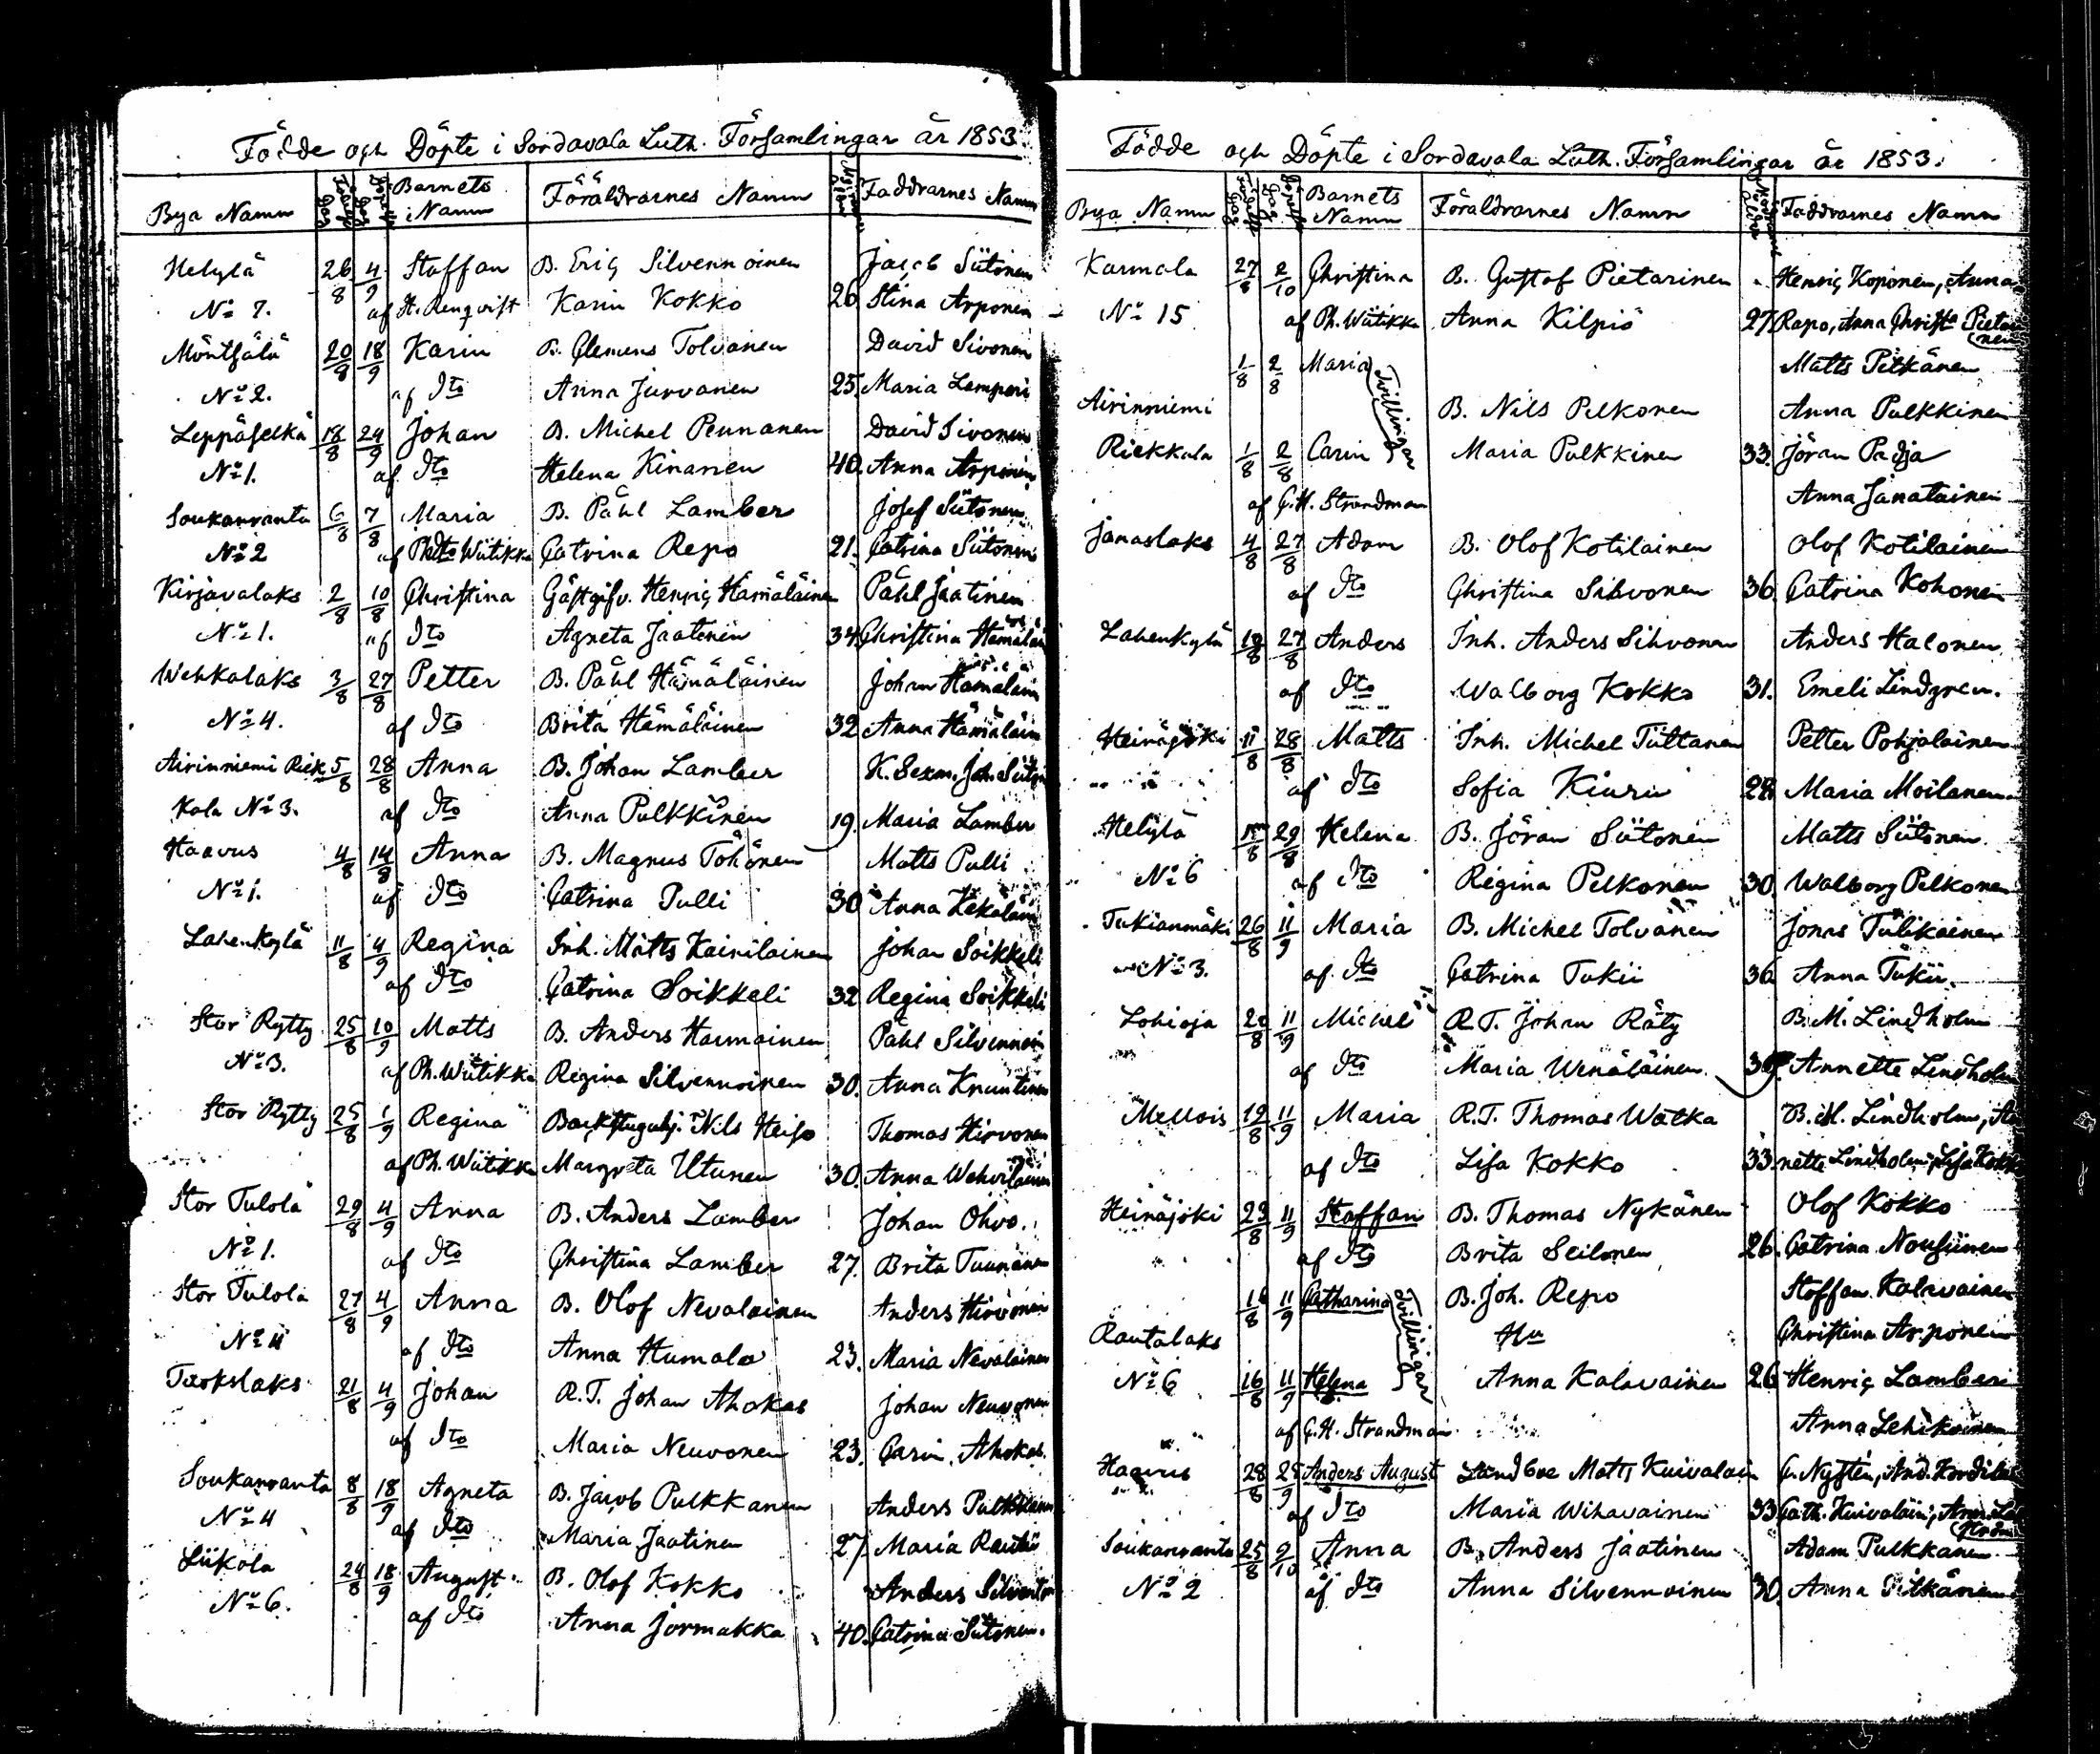 Födde och Döpte i Sordavala Luth. Församlingar år 1853.
Bya Namn Barnets Namn Föräldrarnes Namn Faddrarnes Namn
Helylä 26/8 4/9 Staffan B. Eric Silvennoinen Jacob Siitonen
No 7. af H. Renqvist Karin Kokko 26 Stina Arponen
Möntsälä 20/8 18/9 Karin B. Clemens Tolvanen David Sivonen
No 2. af Dto Anna Jurvanen 25. Maria Lemperi
Leppäselkä 18/8 24/9 Johan B. Michel Pennanen David Sivonen
No 1. af Dto Helena Kinanen 40. Anna Arponen
Soukanranta 6/8 7/8 Maria B. Påhl Lamber Josef Siitonen
No 2 af Wiitikka Catrina Repo 21. Catrina Siitonen
Kirjavalaks 2/8 10/8 Christina Gästgifv. Henric Hämäläinen Påhl Jaatinen
No 1. af Dto Agneta Jaatinen 34. Christina
Wehkalaks 3/8 27/8 Petter B. Påhl Hämäläinen Johan
No 4. af Dto Brita Hämäläinen 32 Anna
Airinniemi Riek 5/8 28/8 Anna B. Johan Lamber K. Sexm. Joh.
kala No 3. af Dto Anna Pulkkinen 19. Maria Lamber
Haavus 4/8 14/8 Anna B. Magnus Töhönen Matts Pulli
No 1. af Dto Catrina Pulli 30 Anna
Lahenkylä 11/8 4/9 Regina Inh. Matts Kainilainen Johan Soikkeli
af Dto Catrina Soikkeli 32 Regina Soikkeli
Stor Rytty 25/8 10/9 Matts B. Anders Harmainen Påhl
No 3. af Ph. Wiitikka Regina Silvennoinen 30. Anna
Stor Rytty 25/8 1/9 Regina Nils Heiso Thomas Hirvonen
af Ph. Wiitikka Margreta Utunen 30. Anna
Stor Tulola 29/8 4/9 Anna B. Anders Lamber Johan Ohvo.
No 1. af Dto Christina Lamber 27. Brita Tuunanen
Stor Tulola 27/8 4/9 Anna B. Olof Nevalainen Anders Hirvonen
No 4 af Dto Anna Humala 23. Maria Nevalainen
Tuokslaks 21/8 4/9 Johan R.T. Johan Ahokas Johan Neuvonen
af Dto Maria Neuvonen 23. Carin Ahokas
Soukanranta 8/8 18/9 Agneta B. Jacob Pulkkanen Anders
No 4 af Dto Maria Jaatinen 27 Maria Rautio
Liikola 24/8 18/9 August B. Olof Kokko Anders
No 6. af Dto Anna Jormakka 40. Catrina Siitonen.
Födde och Döpte i Sordavala Luth. Församlingar år 1853.
Bya Namn Barnets Namn Föräldrarnes Namn Faddrarnes Namn
Karmala 27/8 2/10 Christina B. Gustof Pietarinen Henric Koponen, Anna
No 15 af Ph. Wiitikka Anna Kilpiö 27. Repo, Anna Christa
1/8 2/8 Maria Matts Pitkänen
Tvillingar
Airinniemi B. Nils Pelkonen Anna Pulkkinen
Riekkala 1/8 2/8 Carin Maria Pulkkinen 33. Jöran Padja
af C.H. Strandman Anna Janatuinen
Janaslaks 4/8 27/8 Adam B. Olof Kotilainen Olof Kotilainen
af Dto Christina Sihvonen 36 Catrina Kohonen
Lahenkylä 18/8 27/8 Anders Inh. Anders Sihvonen Anders Halonen
af Dto Walborg Kokko 31. Emeli Lindgren.
Heinäjoki 11/8 28/8 Matts Inh. Michel Tiittanen Petter Pohjolainen
af Dto Sofia Kiuru 28 Maria Moilanen
Helylä 15/8 29/8 Helena B. Jöran Siitonen Matts Siitonen
No 6 af Dto Regina Pelkonen 30. Walborg Pelkonen
Tukianmäki 26/8 11/9 Maria B. Michel Tolvanen Jonas Tulikainen
No 3. af Dto Catrina Tukii 36 Anna Tukii.
Lohioja 20/8 11/9 Michel R.T. Johan Räty B.M. Lindholm
af Dto Maria Wenäläinen Annette Lindholm
Mellois 19/8 11/9 Maria R.T. Thomas Watka B.M. Lindholm, An
af Dto Lisa Kokko 33. nette Lindholm, Lisa Kokko
Heinäjoki 23/8 11/9 Staffan B. Thomas Nykänen Olof Kokko
af Dto Brita Seilonen 26. Catrina Nousiinen
16/8 11/9 Catharina B. Joh. Repo Staffan Kalavainen
Tvillingar
Rautalaks Hu Christina Arponen
No 6 16/8 11/9 Helena Anna Kalavainen 26 Henric Lamberi
af C.H. Strandman Anna Lehikoinen
Haavus 28/8 25/9 Anders August Landboe Matts Kuivalain C. Nystén, And. Kordila
af Dto Maria Wihavainen 33 Cath. Kuivalain,
Soukanranta 25/8 9/10 Anna B. Anders Jaatinen Adam Pulkkanen
No 2 af Dto Anna Silvennoinen 30. Anna Pitkänen